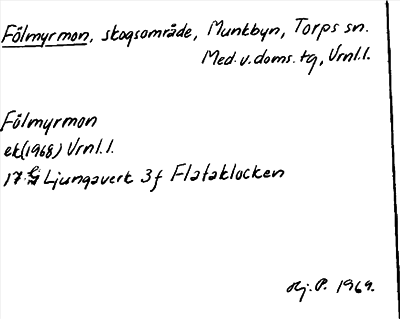 Fölmyrmon, skogsområde, Munkbyn, Torps sn.
Med. v. doms. tg, Vrnl. l.
Fölmyrmon
ek (1968) Vrnl. l.
17 Ljungaverk 3f Flataklocken
Hj. P. 1969.